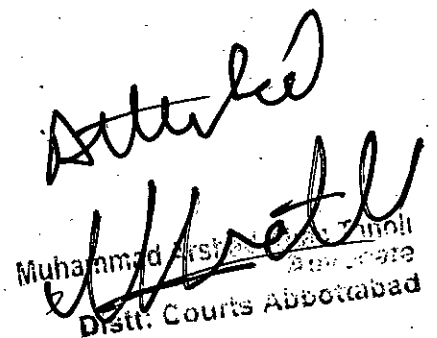 Attested
Muhammad Arshad Tanoli
Advocate
Distt: Courts Abbottabad